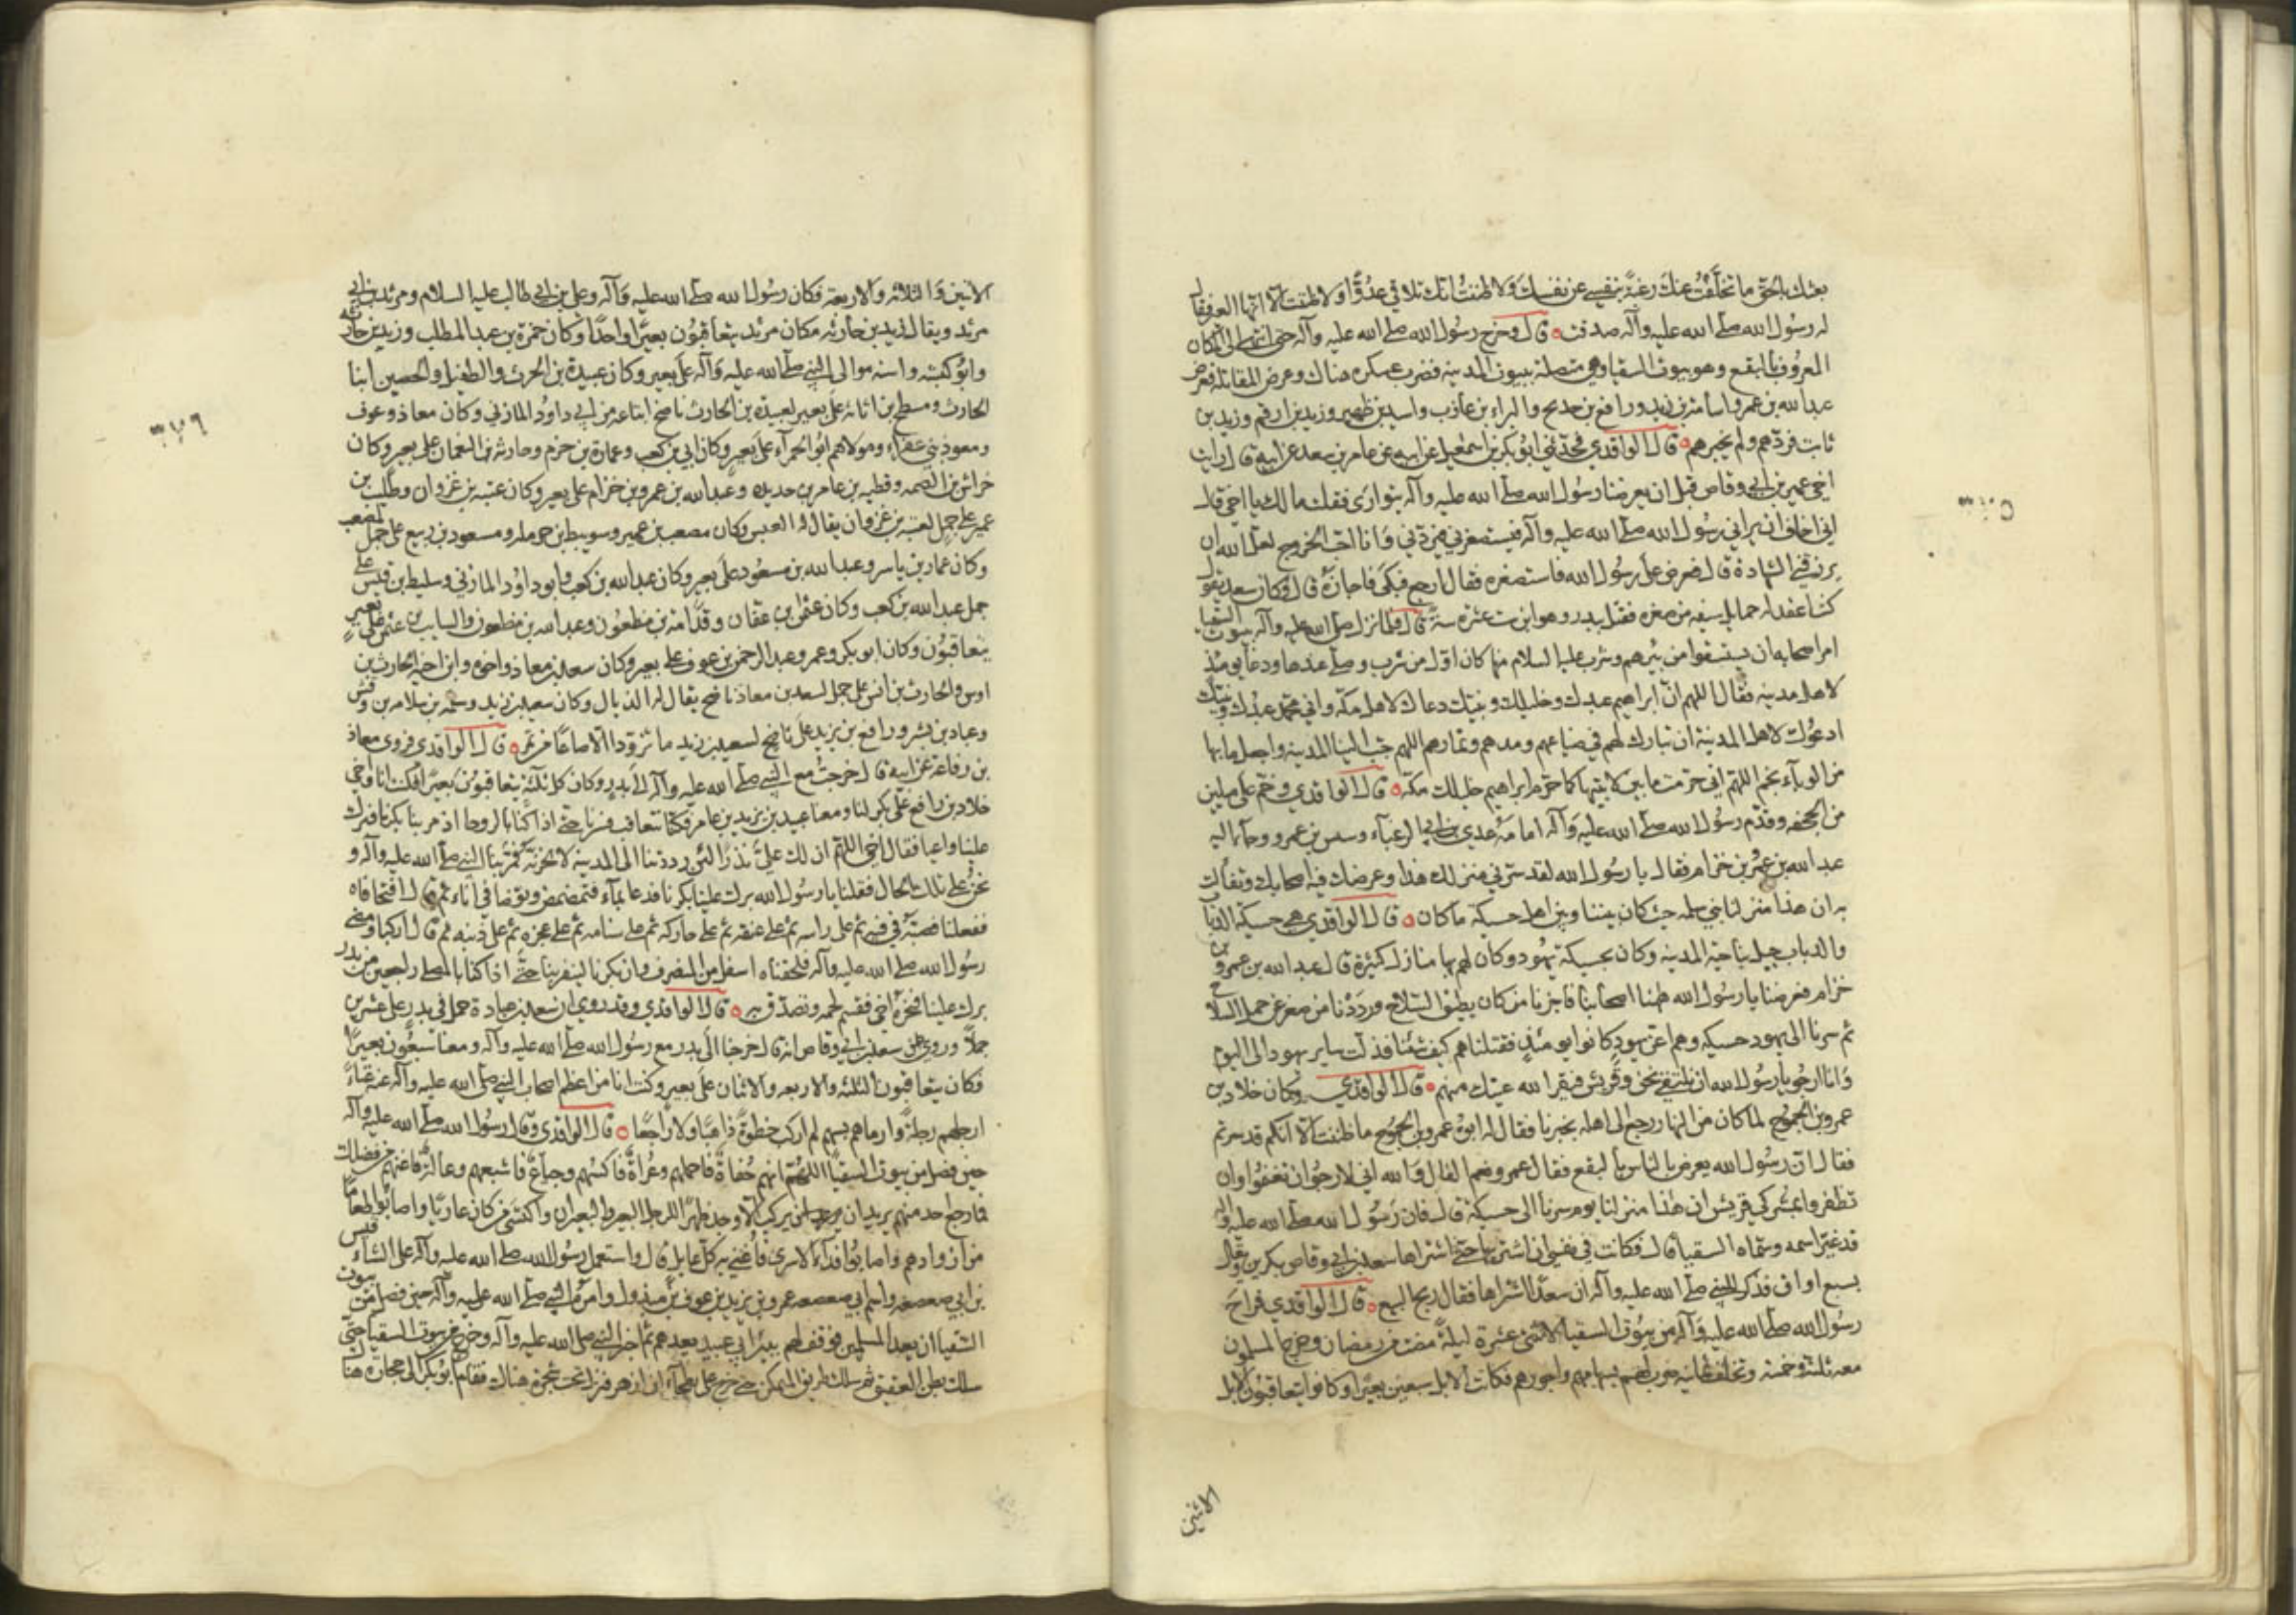 بعثك بالحق ما تخلفت عنك رغبة بنفسي عن نفسك ولا ظننت انك تلاقي عدوا ولا ظننت الا انها العير فقال
له رسول الله صلى الله عليه وآله صدقت ه قال وخرج رسول الله صلى الله عليه وآله حتى انتهى الى المكان
المعروف بالبقع وهو بيوت السقيا وهي متصلة ببيوت المدينه فضرب عسكره هناك وعرض المقاتلة فعرض
عبد الله بن عمر واسامة بن زيد ورافع بن خديج والبراء بن عازب واسيد بن ظهير وزيد بن ارقم وزيد بن
ثابت فردهم ولم يجزهم ه قال الواقدي فحدثني ابو بكر بن اسمعيل عن ابيه عن عامر بن سعد عن ابيه قال رايت
اخي عمير بن ابي وقاص قبل ان يعرضنا رسول الله صلى الله عليه وآله يتوارى فقلت مالك يا اخي قال
اني اخاف ان يراني رسول الله صلى الله عليه وآله فيستصغرني فيردني وانا احب الخروج لعل الله ان
يرزقني الشهادة قال فعرض على رسول الله فاستصغره فقال ارجع فبكى فاجازه قال فكان سعد يقول
كنت اعقد له حمايل سيفه من صغره فقتل ببدر وهو ابن ست عشرة سنة قال فلما نزل صلى الله عليه وآله بيوت السقيا
امر اصحابه ان يستسقوا من بئرهم وشرب عليه السلام منها كان اول من شرب وصلى عندها ودعا يومئذ
لاهل مدينه فقال اللهم ان ابراهيم عبدك وخليلك ونبيك دعاك لاهل مكة واني محمد عبدك ونبيك
ادعوك لاهل المدينة ان تبارك لهم في صاعهم ومدهم وثمارهم اللهم حبب الينا المدينه واجعل ما بها
من الوباء بخم اللهم اني حرمت ما بين لابتيها كما حرم ابراهيم خليلك مكة ه قال الواقدي وخم على ميلين
من الجحفه وقدم رسول الله صلى الله عليه وآله امامه عدي بن ابي الزغباء وبسبس بن عمرو وجاء اليه
عبد الله بن عمرو بن حزام فقال يا رسول الله لقد سرني منزلك هذا وعرضك فيه اصحابك وتفالت
به ان هذا منزلنا بني سلمه حيث كان بيننا وبين اهل حسيكة ما كان ه قال الواقدي هي حسيكة الذباب
والذباب جبل بناحية المدينه وكان بحسيكة يهود وكان لهم بها منازل كثيرة قال عبد الله بن عمرو بن
حزام فعرضنا يا رسول الله ههنا اصحابنا فاجزنا من كان يطيق السلاح ورددنا من صغر عن حمل السلاح
ثم سرنا الى يهود حسيكه وهم اعز يهود كانوا يومئذ فقتلناهم كيف شئنا فذلت ساير يهود الى اليوم
وانا ارجو يا رسول الله ان نلتقي نحن وقريش فيقر الله عينك منهم ه قال الواقدي وكان خلاد بن
عمرو بن الجموح لما كان من النهار رجع الى اهله بخربا فقال له ابوه عمرو بن الجموح ما ظننت الا انكم قد سرتم
فقال ان رسول الله يعرض الناس بالبقع فقال عمرو نعم الفال والله اني لارجو ان تغنموا وان
تظفروا بمشركي قريش ان هذا منزلنا يوم سرنا الى حسيكة قال فان رسول الله صلى الله عليه وآله
قد غير اسمه وسماه السقيا قال فكانت في نفسي ان اشتريها حتى اشتراها سعد بن ابي وقاص ببكرين ويقال
بسبع اواق فذكر للنبي صلى الله عليه وآله ان سعدا اشتراها فقال ربح البيع ه قال الواقدي فراح
رسول الله صلى الله عليه وآله من بيوت السقيا لاثنتى عشرة ليلة مضت من رمضان وخرج المسلمون
معه ثلثمائة وخمسة وتخلف ثمانيه ضرب لهم بسهامهم واجورهم فكانت الابل سبعين بعيرا وكانوا يتعاقبون الابل
الاثنين
٣٧٥
الاثنين والثلاثه والاربعة فكان رسول الله صلى الله عليه وآله وعلي بن ابي طالب عليه السلام ومرثد بن ابي
مرثد ويقال زيد بن حارثه مكان مرثد يتعاقبون بعيرا واحدا وكان حمزة بن عبد المطلب وزيد بن حارثه
وابو كبشه وانسه موالي النبي صلى الله عليه وآله على بعير وكان عبيدة بن الحرث والطفيل والحصين ابنا
الحارث ومسطح بن اثاثة على بعير لعبيدة بن الحارث ناضح ابتاعه من ابي داود المازني وكان معاذ وعوف
ومعوذ بني عفراء ومولاهم ابو الحمراء على بعير وكان ابي بن كعب وعمارة بن حزم وحارثه بن النعمان على بعير وكان
خراش بن الصمه وقطبه بن عامر بن حديده وعبد الله بن عمرو بن حزام على بعير وكان عتبه بن غزوان وطليب بن
عمير على جمل لعتبه بن غزوان يقال له العبس وكان مصعب بن عمير وسويبط بن حرمله ومسعود بن ربيع على جمل لمصعب
وكان عمار بن ياسر وعبد الله بن مسعود على بعير وكان عبد الله بن كعب وابو داود المازني وسليط بن قيس على
جمل عبد الله بن كعب وكان عثمان بن عفان وقدامة بن مظعون وعبد الله بن مظعون والسايب بن عثمان على بعير
يتعاقبون وكان ابو بكر وعمر وعبد الرحمن بن عوف على بعير وكان سعد بن معاذ واخوه وابن اخيه الحارث بن
اوس والحارث بن انس على جمل لسعد بن معاذ ناضح يقال له الذيال وكان سعيد بن زيد وسلمه بن سلامه بن وقش
وعباد بن بشر ورافع بن يزيد على ناضح لسعيد بن زيد ما تزودوا الا صاعا من تمر ه قال الواقدي فروى معاذ
بن رفاعة عن ابيه قال خرجت مع النبي صلى الله عليه وآله الى بدر وكان كل ثلثة يتعاقبون بعيرا فكنت انا واخي
خلاد بن رافع على بكر لنا ومعنا عبيد بن يزيد بن عامر فكنا نتعاقب فسرنا حتى اذا كنا بالروحا اذ مر بنا بكرنا فبرك
علينا واعيا فقال اخي اللهم ان لك علي نذرا لئن رددتنا الى المدينه لانحرنه فمر بنا النبي صلى الله عليه وآله و
نحن على تلك الحال فقلنا يا رسول الله برك علينا بكرنا فدعا بماء فتمضمض وتوضا في اناء ثم قال افتحا فاه
ففعلنا فصبه في فيه ثم على راسه ثم على عنقه ثم على حاركه ثم على سنامه ثم على عجزه ثم على ذنبه ثم قال اركبا ومضى
رسول الله صلى الله عليه وآله فلحقناه اسفل من المنصرف وان بكرنا لينفر بنا حتى اذا كنا بالمصلى راجعين من بدر
برك علينا فنحره اخي فقسم لحمه وتصدق به ه قال الواقدي وقد روي ان سعد بن عبادة حمل في بدر على عشرين
جملا وروي عن سعد بن ابي وقاص انه قال خرجنا الى بدر مع رسول الله صلى الله عليه وآله ومعنا سبعون بعيرا
فكان يتعاقبون الثلثه والاربعه والاثنان على بعير وكنت انا من اعظم اصحاب النبي صلى الله عليه وآله عنه غناء
ارجلهم رجلة وارماهم بسهم لم اركب خطوة ذاهبا ولا راجعا ه قال الواقدي وقال رسول الله صلى الله عليه وآله
حين فصل من بيوت السقيا اللهم انهم حفاة فاحملهم وعراة فاكسهم وجياع فاشبعهم وعالة فاغنهم من فضلك
فما رجع احد منهم يريد ان يركب الا وجد ظهرا للرجل البعير والبعيران واكتسى من كان عاريا واصابوا طعاما
من ازوادهم واصابوا فداء الاسرى فاغني به كل عايل قال واستعمل رسول الله صلى الله عليه وآله على المشاة قيس
بن ابي صعصعه واسم ابي صعصعه عمرو بن يزيد بن عوف بن مبذول وامره النبي صلى الله عليه وآله حين فصل من بيوت
السقيا ان يعد المسلمين فوقف لهم ببئر ابي عبيد يعدهم ثم اخبر النبي صلى الله عليه وآله وخرج من بيوت السقيا حتى
سلك بطن العقيق ثم سلك طريق المكتمن حتى خرج على بطحاء ابن ازهر فنزل تحت شجرة هناك فقام ابو بكر الى حجارة هناك
٣٧٦